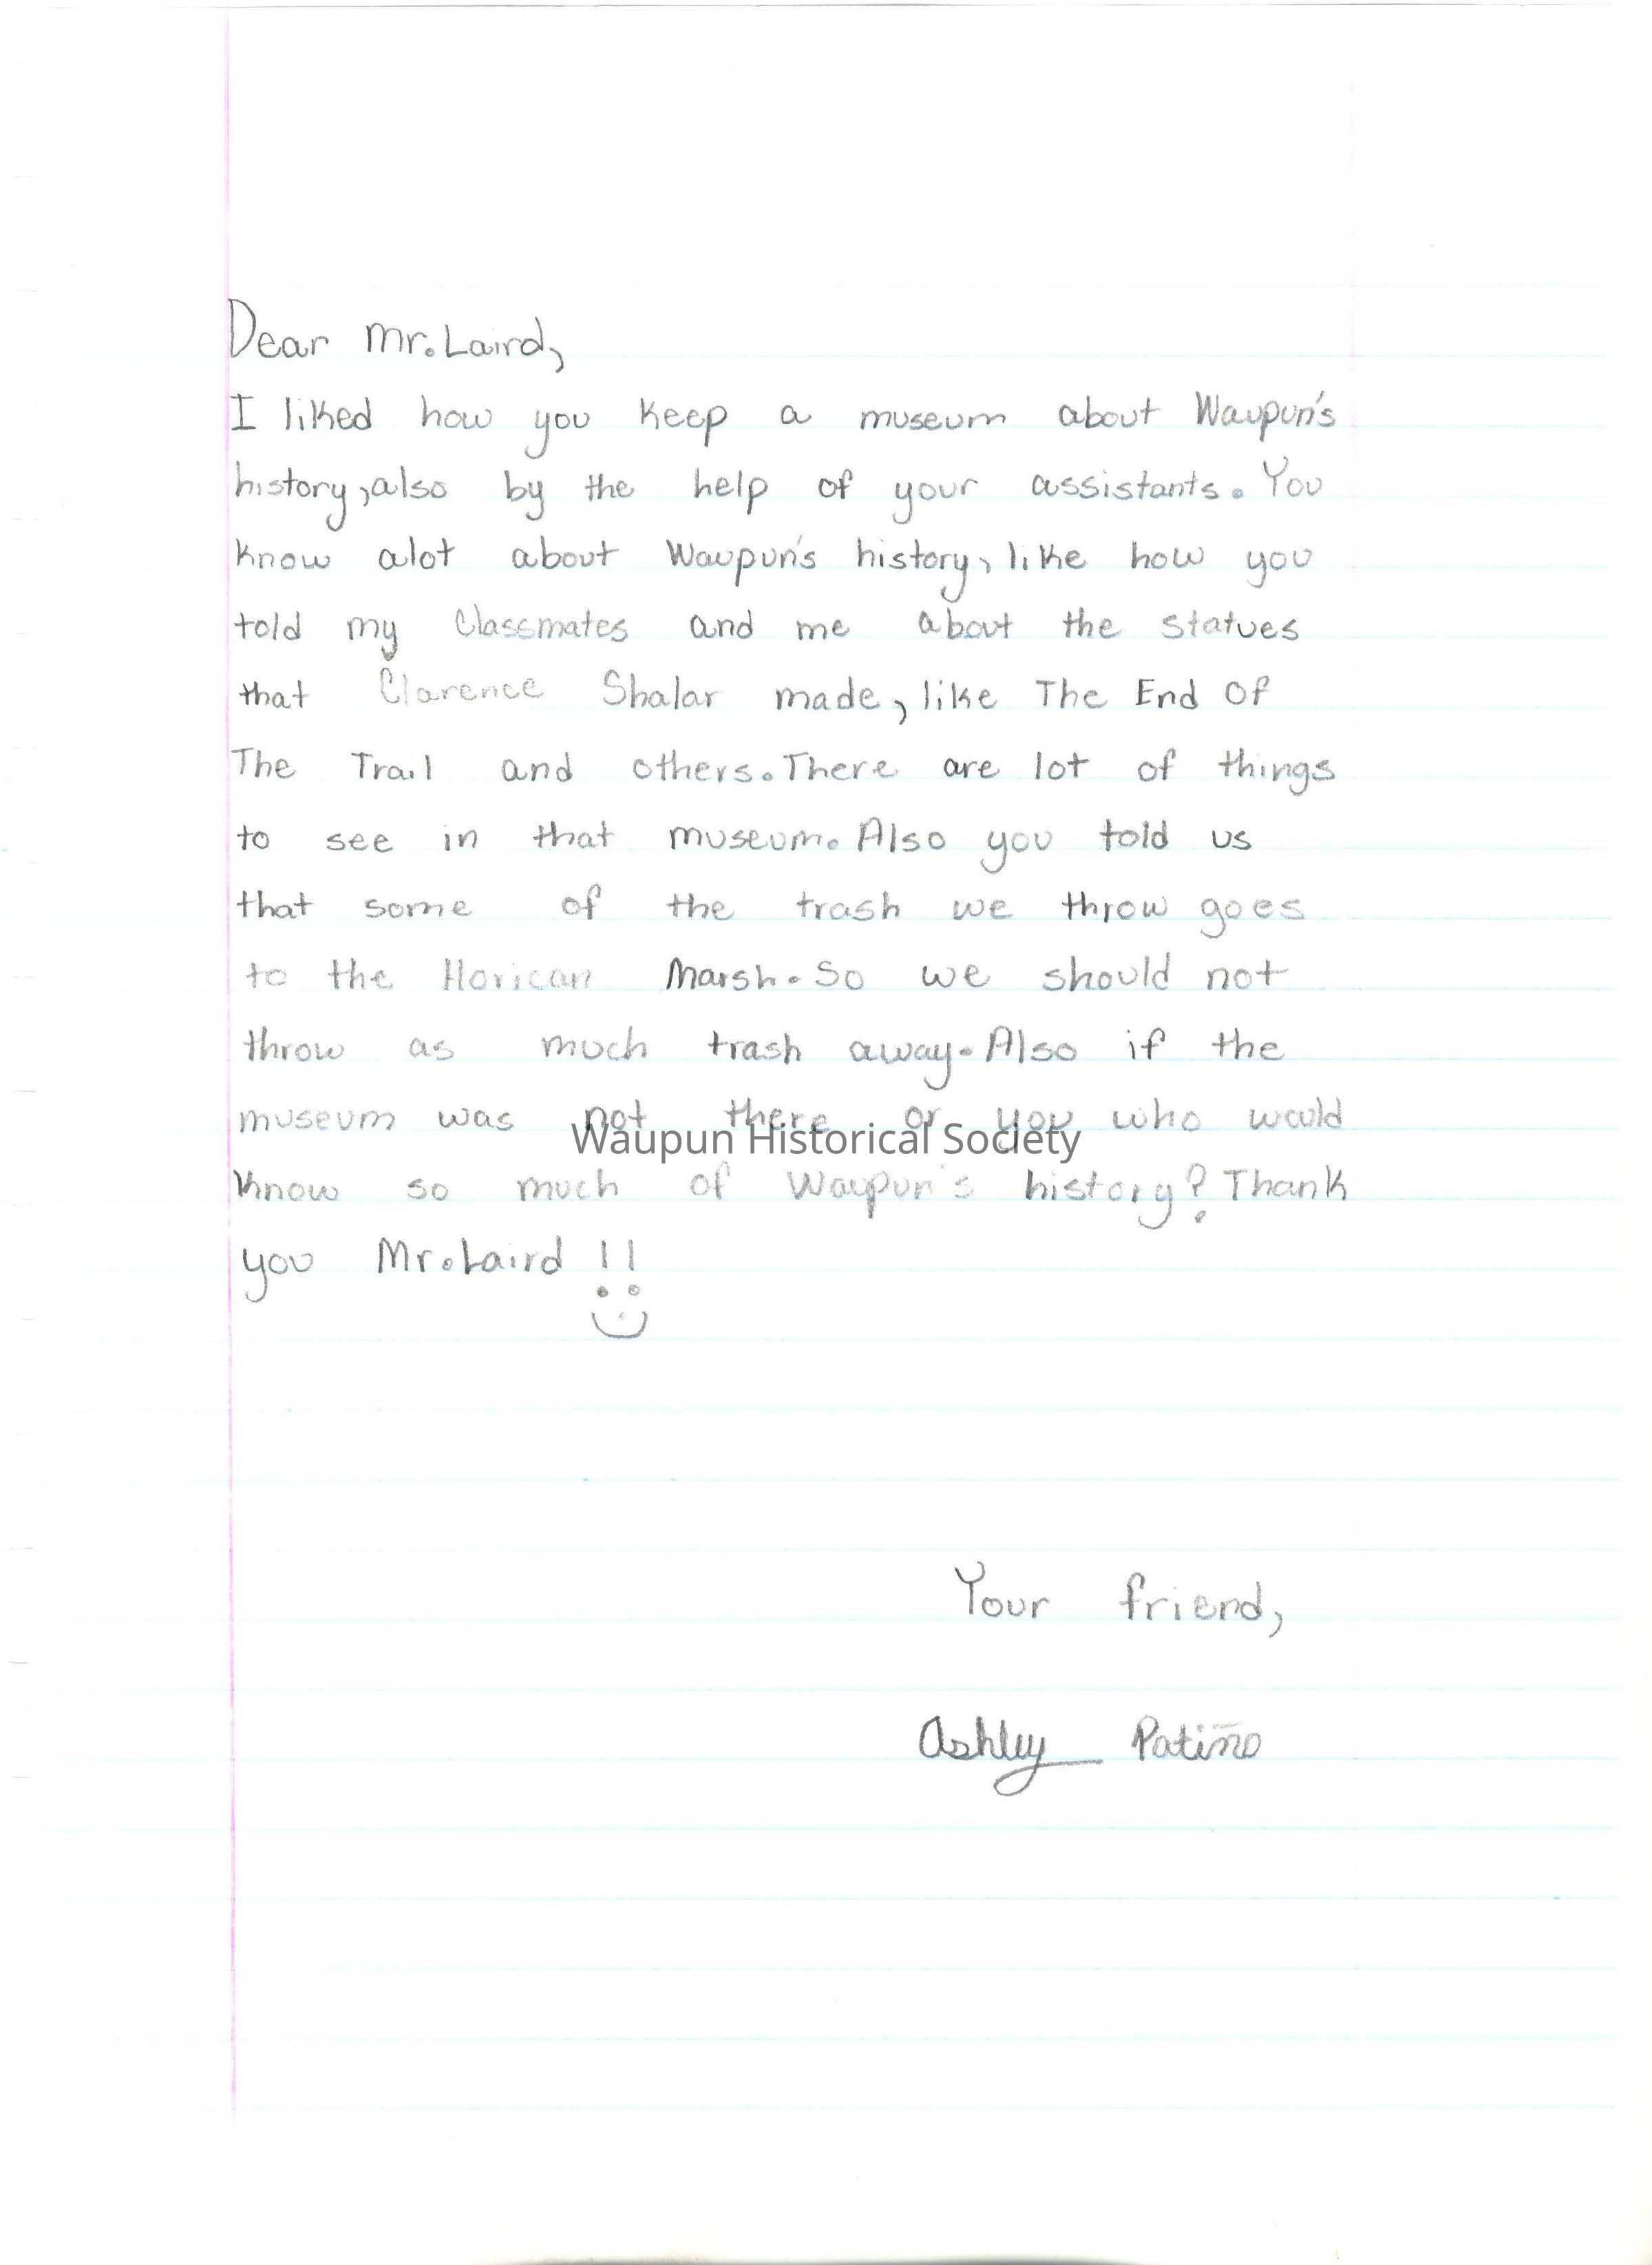 Dear Mr. Laird,
I liked how you keep a museum about Waupun's
history, also by the help of your assistants. You
know alot about Waupun's history, like how you
told my classmates and me about the statues
that Clarence Shalar made, like The End Of
The Trail and others. There are lot of things
to see in that museum. Also you told us
that some of the trash we throw goes
to the Horican Marsh. So we should not
throw as much trash away. Also if the
museum was not there or you who would
Waupun Historical Society
know so much of Waupun's history? Thank
you Mr. Laird !!
Your friend,
Ashley Patiño